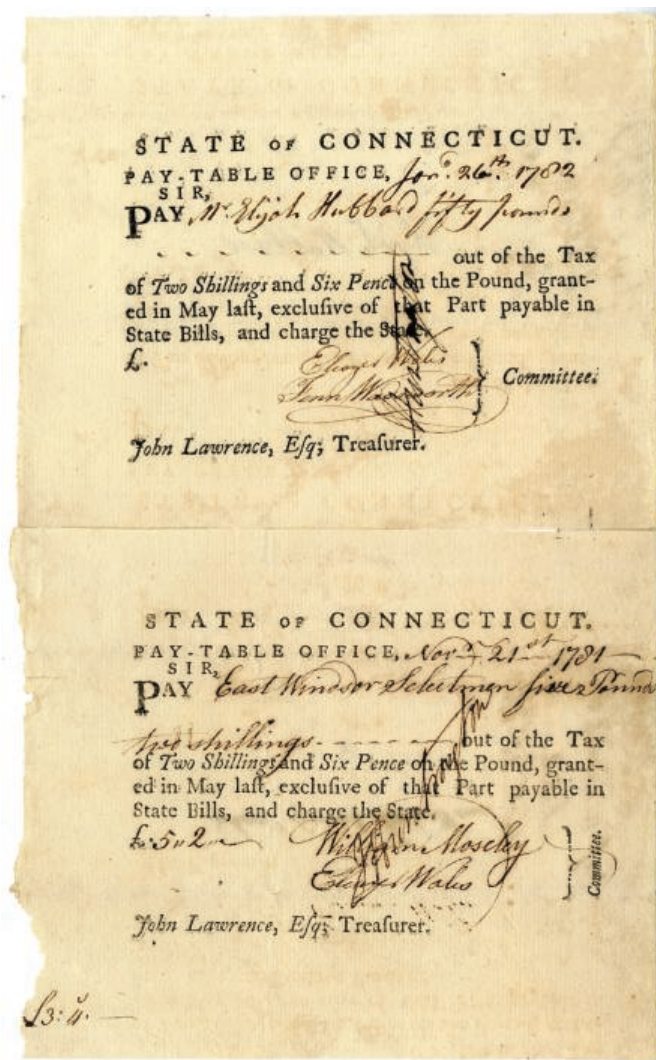 STATE OF CONNECTICUT.
PAY-TABLE OFFICE, Janʳ. 26ᵗʰ. 1782
SIR,
PAY, Mr. Elijah Hubbard fifty pounds
out of the Tax
of Two Shillings and Six Pence on the Pound, grant-
ed in May laſt, excluſive of that Part payable in
State Bills, and charge the State.
£.
Eleazer Wales
Fenn Wadsworth
Committee.
John Lawrence, Eſq; Treaſurer.
STATE OF CONNECTICUT.
PAY-TABLE OFFICE, Novʳ. 21ˢᵗ 1781
SIR,
PAY East Windsor Selectmen five Pounds
two shillings out of the Tax
of Two Shillings and Six Pence on the Pound, grant-
ed in May laſt, excluſive of that Part payable in
State Bills, and charge the State.
£. 5 " 2 "
William Moseley
Eleazer Wales
Committee.
John Lawrence, Eſq; Treaſurer.